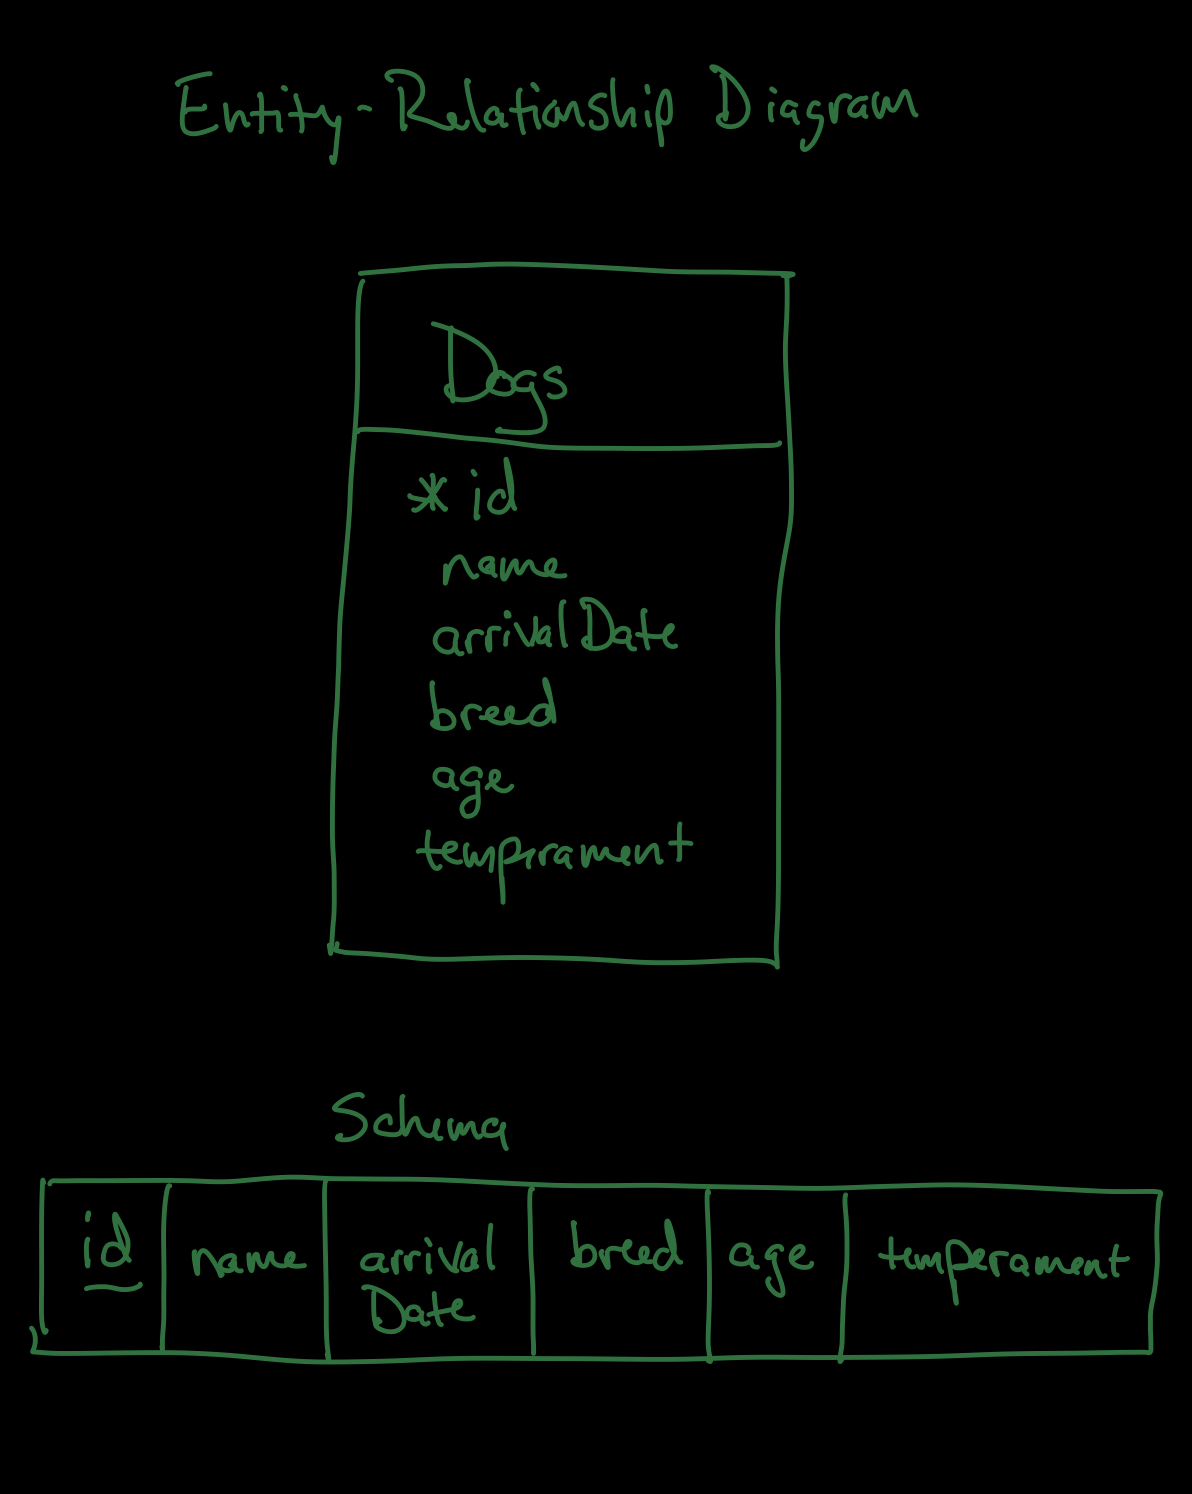 Entity-Relationship Diagram
Dogs
* id
name
arrivalDate
breed
age
temprament
Schema
id
name
arrival
Date
breed
age
temperament